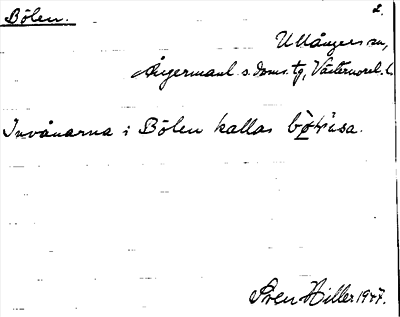 Bölen.
2.
Ullångers sn,
Ångermanl. s. doms. tg, Västernorrl. l.
Invånarna i Bölen kallas
Sven Hiller 1947.